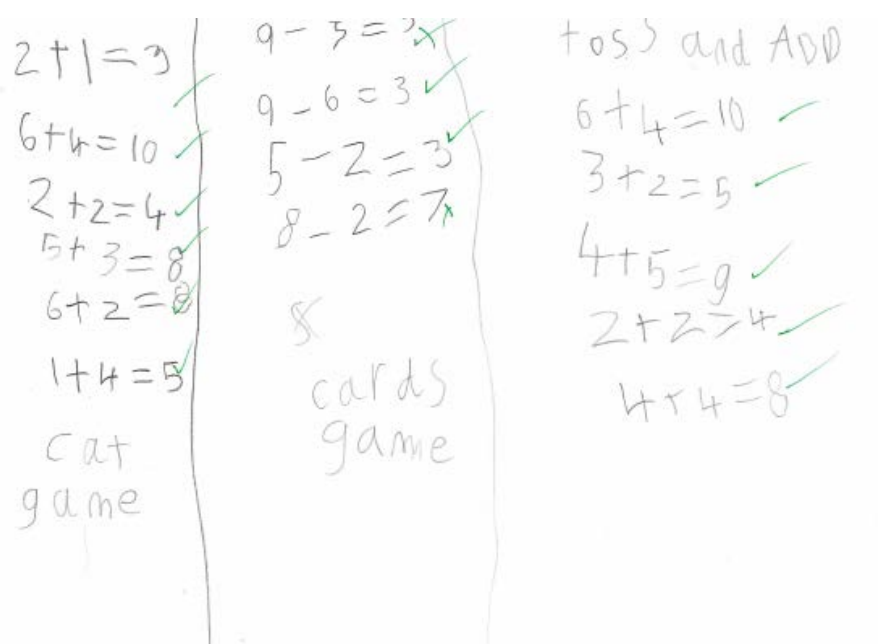 2+1=3
6+4=10
2+2=4
5+3=8
6+2=8
1+4=5
cat
game
9-6=3
5-2=3
8-2=7
cards
game
toss and ADD
6+4=10
3+2=5
4+5=9
2+2=4
4+4=8